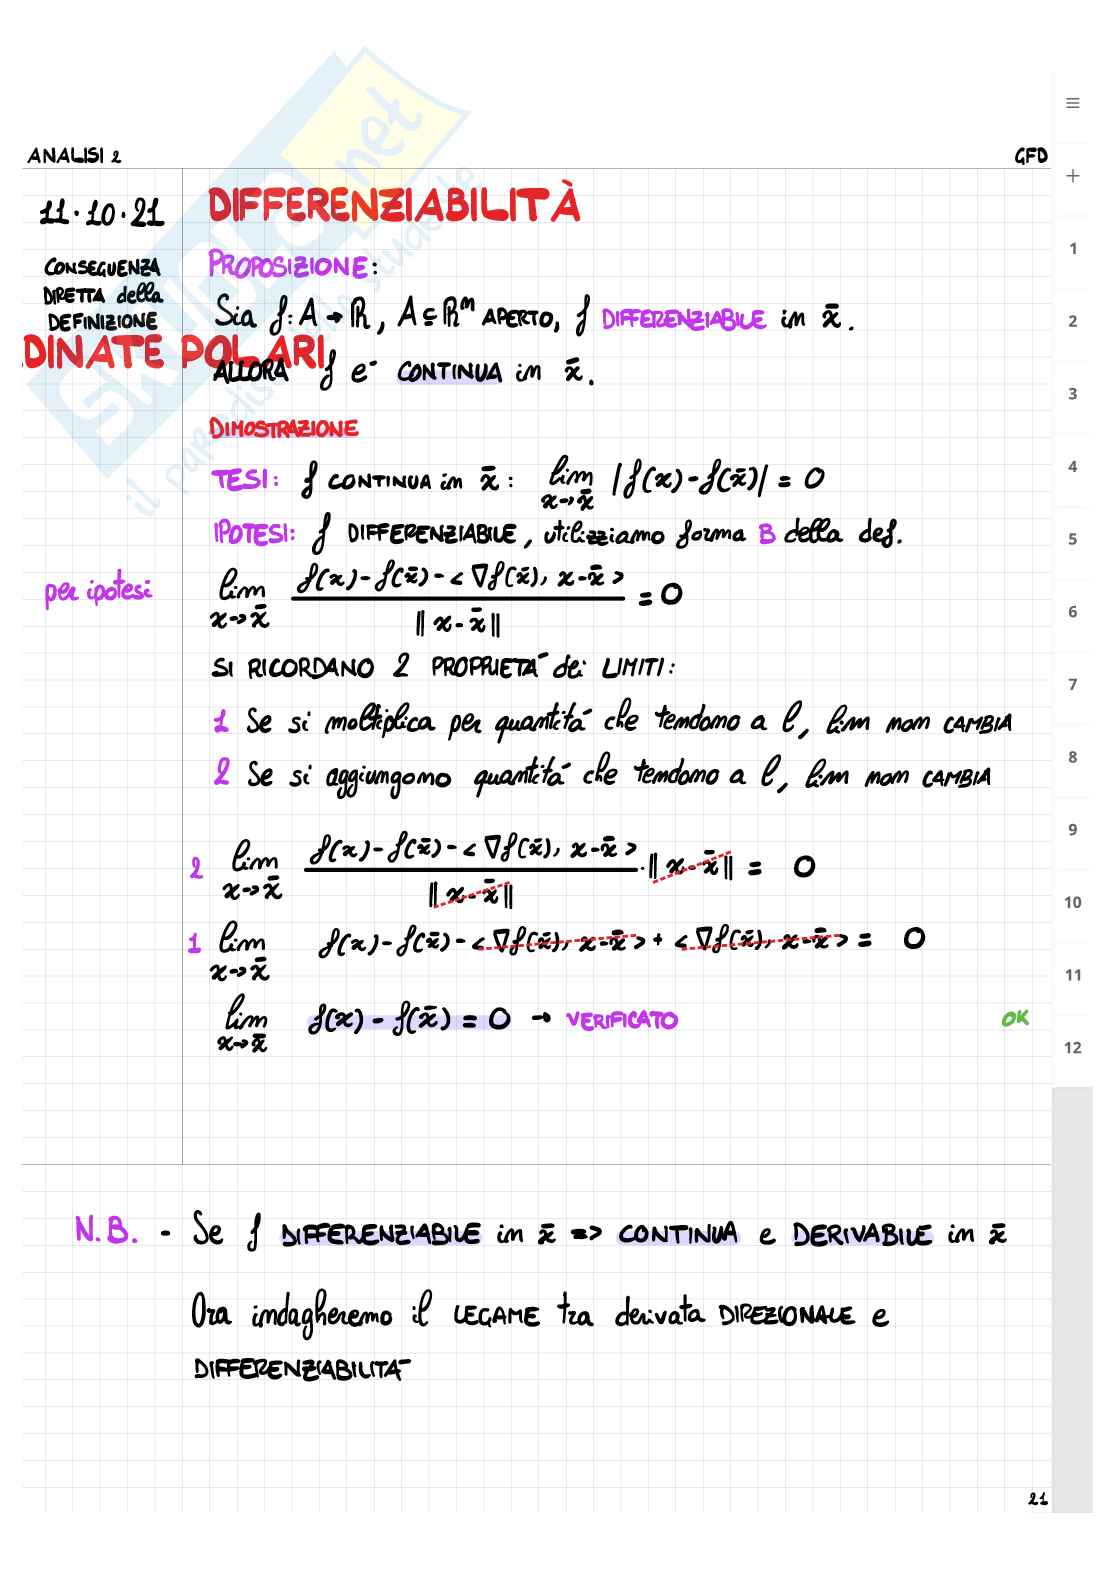 ANALISI 2
GFD
11·10·21
DIFFERENZIABILITÀ
CONSEGUENZA
DIRETTA della
DEFINIZIONE
DINATE POLARI
PROPOSIZIONE:
Sia f: A → ℝ, A ⊆ ℝⁿ APERTO, f DIFFERENZIABILE in x̄.
ALLORA f e' CONTINUA in x̄.
DIMOSTRAZIONE
TESI: f CONTINUA in x̄: lim x→x̄ |f(x)-f(x̄)| = 0
IPOTESI: f DIFFERENZIABILE, utilizziamo forma B della def.
per ipotesi
lim x→x̄ f(x)-f(x̄)-<∇f(x̄), x-x̄> / ‖x-x̄‖ = 0
SI RICORDANO 2 PROPRIETA' dei LIMITI:
1 Se si moltiplica per quantità che tendono a l, lim non CAMBIA
2 Se si aggiungono quantità che tendono a l, lim non CAMBIA
2 lim x→x̄ f(x)-f(x̄)-<∇f(x̄), x-x̄> / ‖x-x̄‖ · ‖x-x̄‖ = 0
1 lim x→x̄ f(x)-f(x̄)-<∇f(x̄), x-x̄> + <∇f(x̄), x-x̄> = 0
lim x→x̄ f(x)-f(x̄) = 0 → VERIFICATO OK
N.B. - Se f DIFFERENZIABILE in x̄ => CONTINUA e DERIVABILE in x̄
Ora indagheremo il LEGAME tra derivata DIREZIONALE e
DIFFERENZIABILITA'
21
≡
+
1
2
3
4
5
6
7
8
9
10
11
12
SKUOLA.net
il paradiso dello studente